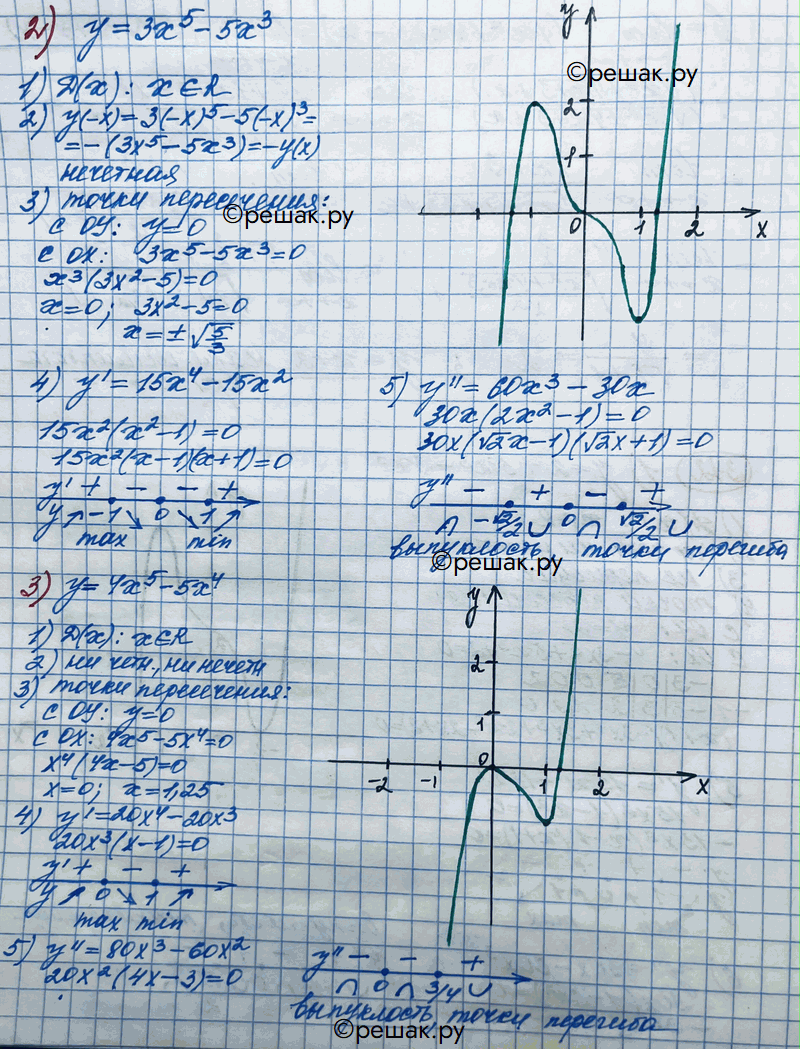 2) y = 3x⁵ - 5x³
1) D(x): x∈R
2) y(-x) = 3(-x)⁵ - 5(-x)³ =
= -(3x⁵ - 5x³) = -y(x)
нечетная
3) точки пересечения:
с OY: y=0
с OX: 3x⁵ - 5x³ = 0
x³(3x² - 5) = 0
x=0; 3x² - 5 = 0
x = ± √5/3
4) y' = 15x⁴ - 15x²
15x²(x² - 1) = 0
15x²(x-1)(x+1) = 0
y' + - - +
y ↗ -1 ↘ 0 ↘ 1 ↗
max min
y
2
1
0 1 2 x
©решак.ру
©решак.ру
5) y'' = 60x³ - 30x
30x(2x² - 1) = 0
30x(√2x - 1)(√2x + 1) = 0
y'' - + - +
∩ -√2/2 ∪ 0 ∩ √2/2 ∪
выпуклость, точки перегиба
©решак.ру
3) y = 4x⁵ - 5x⁴
1) D(x): x∈R
2) ни четн., ни нечетн
3) точки пересечения:
с OY: y=0
с OX: 4x⁵ - 5x⁴ = 0
x⁴(4x - 5) = 0
x=0; x=1,25
4) y' = 20x⁴ - 20x³
20x³(x-1) = 0
y' + - +
y ↗ 0 ↘ 1 ↗
max min
y
2
1
0
-2 -1 1 2 x
5) y'' = 80x³ - 60x²
20x²(4x-3) = 0
y'' - - +
∩ 0 ∩ 3/4 ∪
выпуклость, точки перегиба
©решак.ру